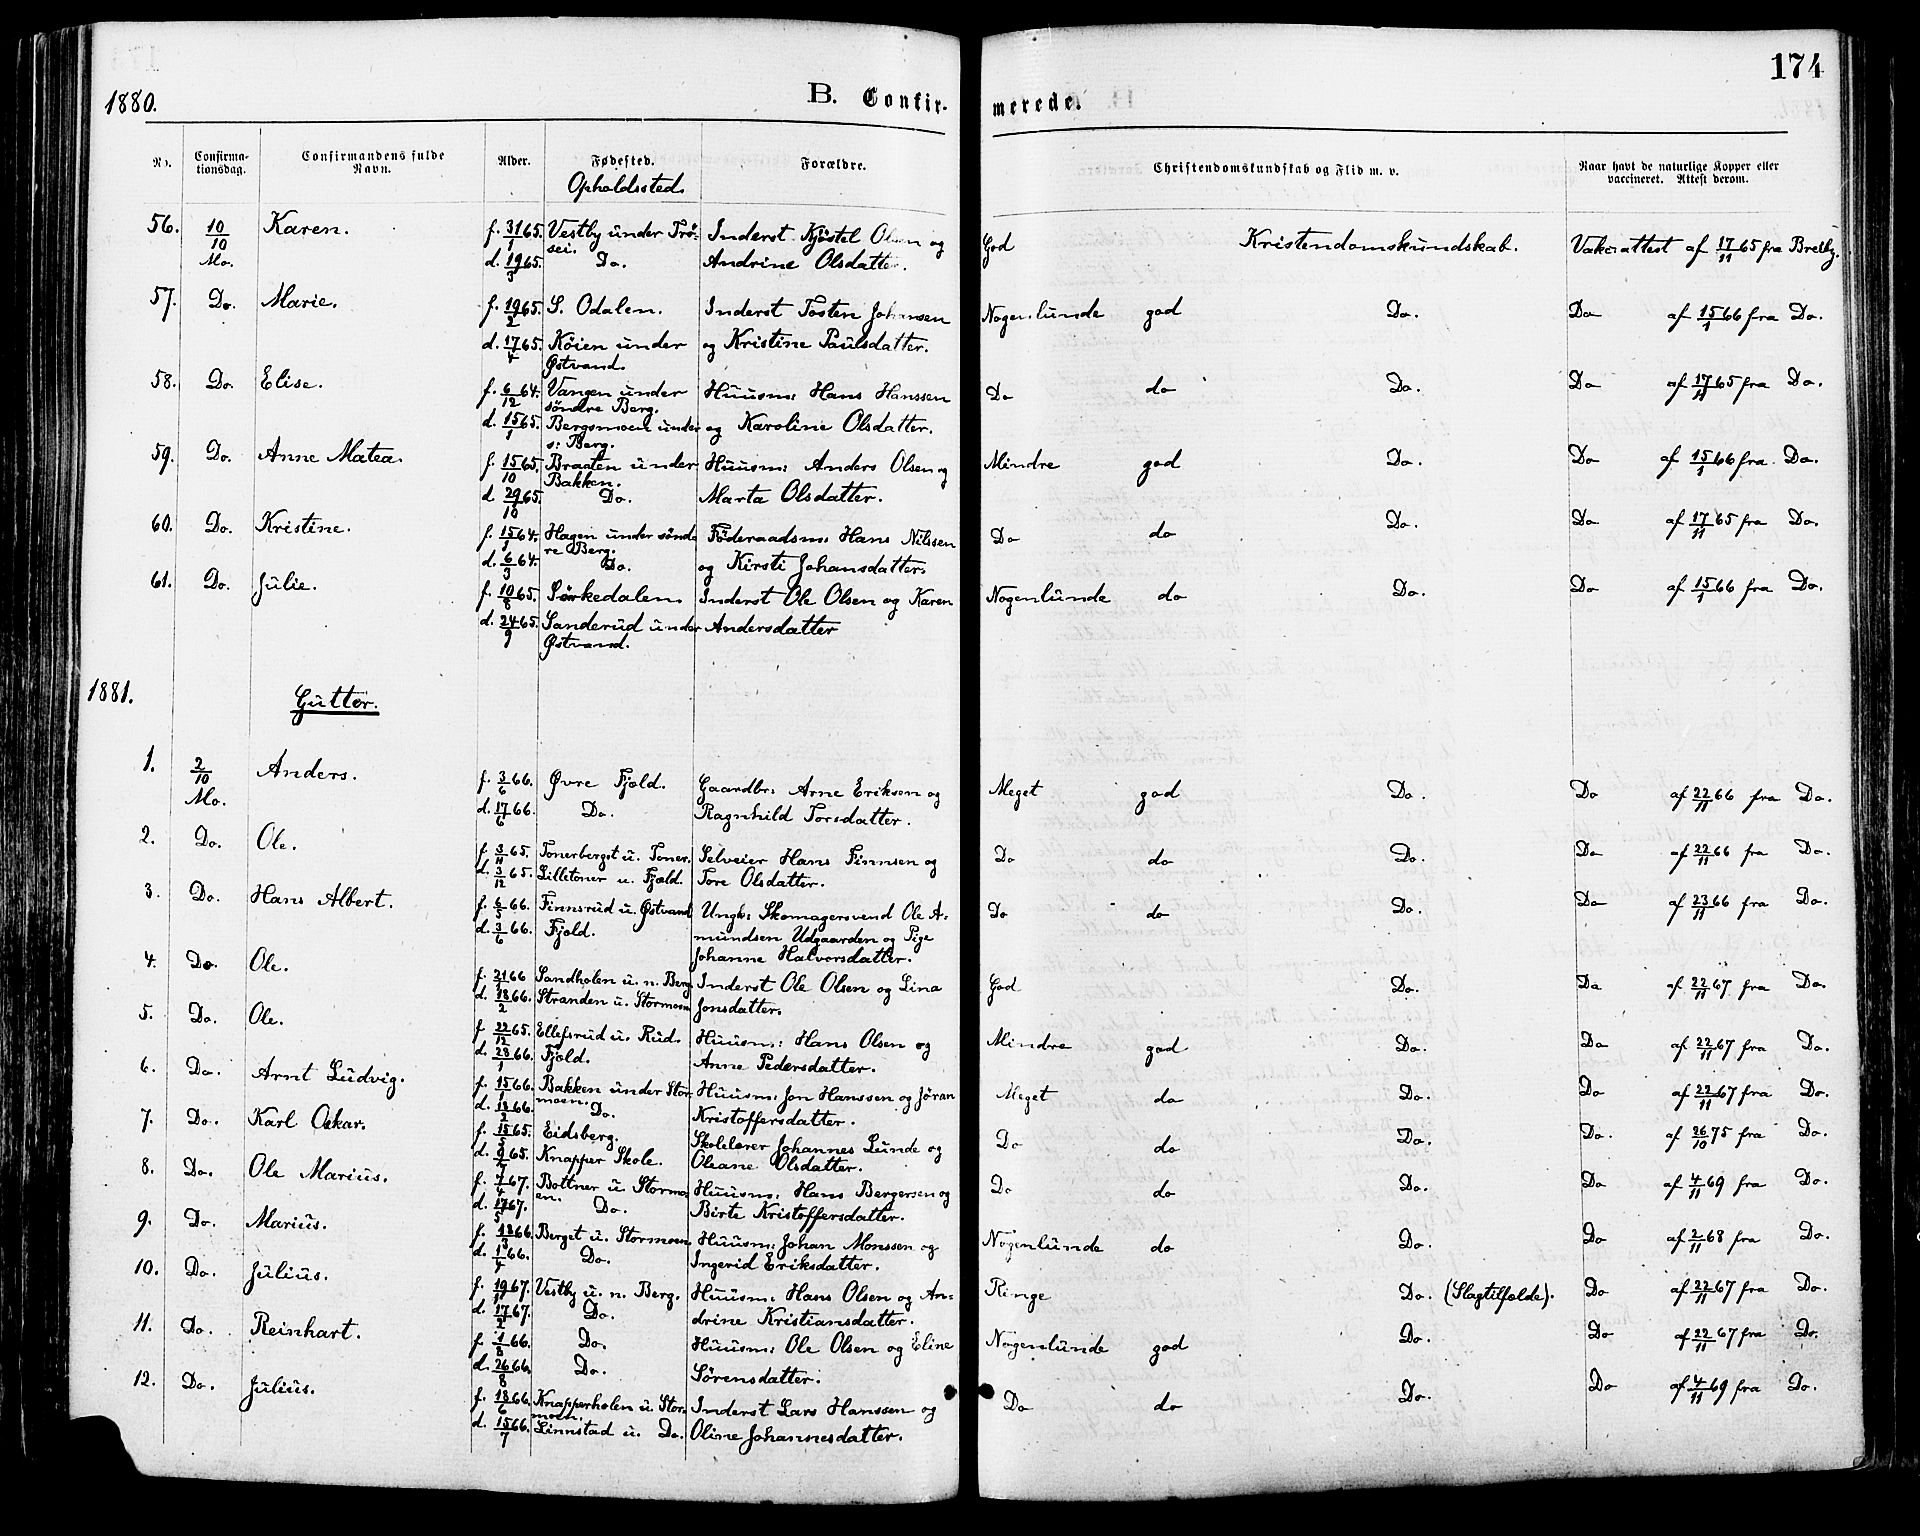 174
1880. B. Confirmerede.
No. Confirmationsdag. Confirmandens fulde Navn. Alder. Fødested. Forældre. Christendomskundskab og Flid m. v. Naar havt de naturlige Kopper eller vaccineret. Attest derom.
Opholdssted.
56. 10/10 Karen. f. 31/1 65. Vestby under Trösei. Inderst Kjöstel Olsen og God Kristendomskundskab. Vakc:attest af 17/11 65 fra Breiby.
Mo. d. 19/3 65. Do. Andrine Olsdatter.
57. Do. Marie. f. 19/2 65. S. Odalen. Inderst Tosten Johansen Nogenlunde god Do. Do af 15/1 66 fra Do.
d. 17/4 65. Köien under Østvand. og Kristine Paulsdatter.
58. Do. Elise. f. 6/12 64. Vangen under söndre Berg. Huusm: Hans Hanssen Do do Do. Do af 17/11 65 fra Do.
d. 15/1 65. Bergsmoen under s: Berg. og Karoline Olsdatter.
59. Do. Anne Matea. f. 15/10 65. Braaten under Bakken. Huusm: Anders Olsen og Mindre god Do. Do af 15/1 66 fra Do.
d. 29/10 65. Do. Marta Olsdatter.
60. Do. Kristine. f. 15/1 64. Hagen under söndre Berg. Föderaadsm: Hans Nilssen Do do Do. Do af 17/11 65 fra Do.
d. 6/3 64. Do. og Kirsti Johansdatter.
61. Do. Julie. f. 10/8 65. Sörkedalen. Inderst Ole Olsen og Karen Nogenlunde do Do. Do af 15/1 66 fra Do.
d. 24/9 65. Sanderud under Østvand. Andersdatter
1881. Gutter.
1. 2/10 Anders. f. 3/6 66. Øvre Fjeld. Gaardbr: Arne Eriksen og Meget god Do. Do af 22/11 66 fra Do.
Mo. d. 17/6 66. Do. Ragnhild Torsdatter.
2. Do. Ole. f. 3/11 65. Tonerberget u. Toner. Selveier Hans Finnsen og Do do Do. Do af 22/11 66 fra Do.
d. 3/12 65. Lilletoner u. Fjeld. Tore Olsdatter.
3. Do. Hans Albert. f. 6/5 66. Finnsrud u. Østvand Ungk: Skomagersvend Ole A- Do do Do. Do af 23/11 66 fra Do.
d. 3/6 66. Fjeld. mundsen Udgaarden og Pige
Johanne Halvorsdatter.
4. Do. Ole. f. 21/1 66 Sandholen u. n. Berg Inderst Ole Olsen og Lina God Do. Do af 22/11 67 fra Do.
d. 18/2 66. Stranden u. Stormoen Jonsdatter.
5. Do. Ole. f. 22/12 65. Ellefsrud u. Rud. Huusm: Hans Olsen og Mindre god Do. Do af 22/11 67 fra Do.
d. 28/1 66. Fjeld. Anne Pedersdatter.
6. Do. Arnt Ludvig. f. 15/1 66. Bakken under Stormoen. Huusm: Jon Hanssen og Jöran Meget do Do. Do af 22/11 67 fra Do.
d. 18/2 66. Do. Kristoffersdatter.
7. Do. Karl Oskar. f. 15/5 65. Eidsberg. Skolelærer Johannes Lunde og Do do Do. Do. af 26/10 75 fra Do.
d. 9/7 65. Knapper Skole. Oleane Olsdatter.
8. Do. Ole Marius. f. 7/4 67. Bottner u. Stormoen. Huusm: Hans Bergersen og Do do Do. Do af 4/11 69 fra Do.
d. 17/5 67. Do. Birte Kristoffersdatter.
9. Do. Marius. f. 18/3 66. Berget u. Stormoen Huusm: Johan Monssen og Nogenlunde do Do. Do af 2/11 68 fra Do.
d. 1/4 66. Do. Ingerid Eriksdatter.
10. Do. Julius. f. 19/1 67. Vestby u. n. Berg. Huusm: Hans Olsen og An- Ringe Do. (Slagtilfælde). Do af 22/11 67 fra Do.
d. 17/2 67. Do. drine Kristiansdatter.
11. Do. Reinhart. f. 1/8 66. Do. Huusm: Ole Olsen og Eline Nogenlunde god Do. Do af 22/11 67 fra Do.
d. 26/8 66. Do. Sörensdatter.
12. Do. Julius. f. 18/6 66. Knapperholen u. Stormoen. Inderst Lars Hanssen og Do do Do. Do af 4/11 69 fra Do.
d. 15/7 66. Linnstad u. Do. Oline Johannesdatter.